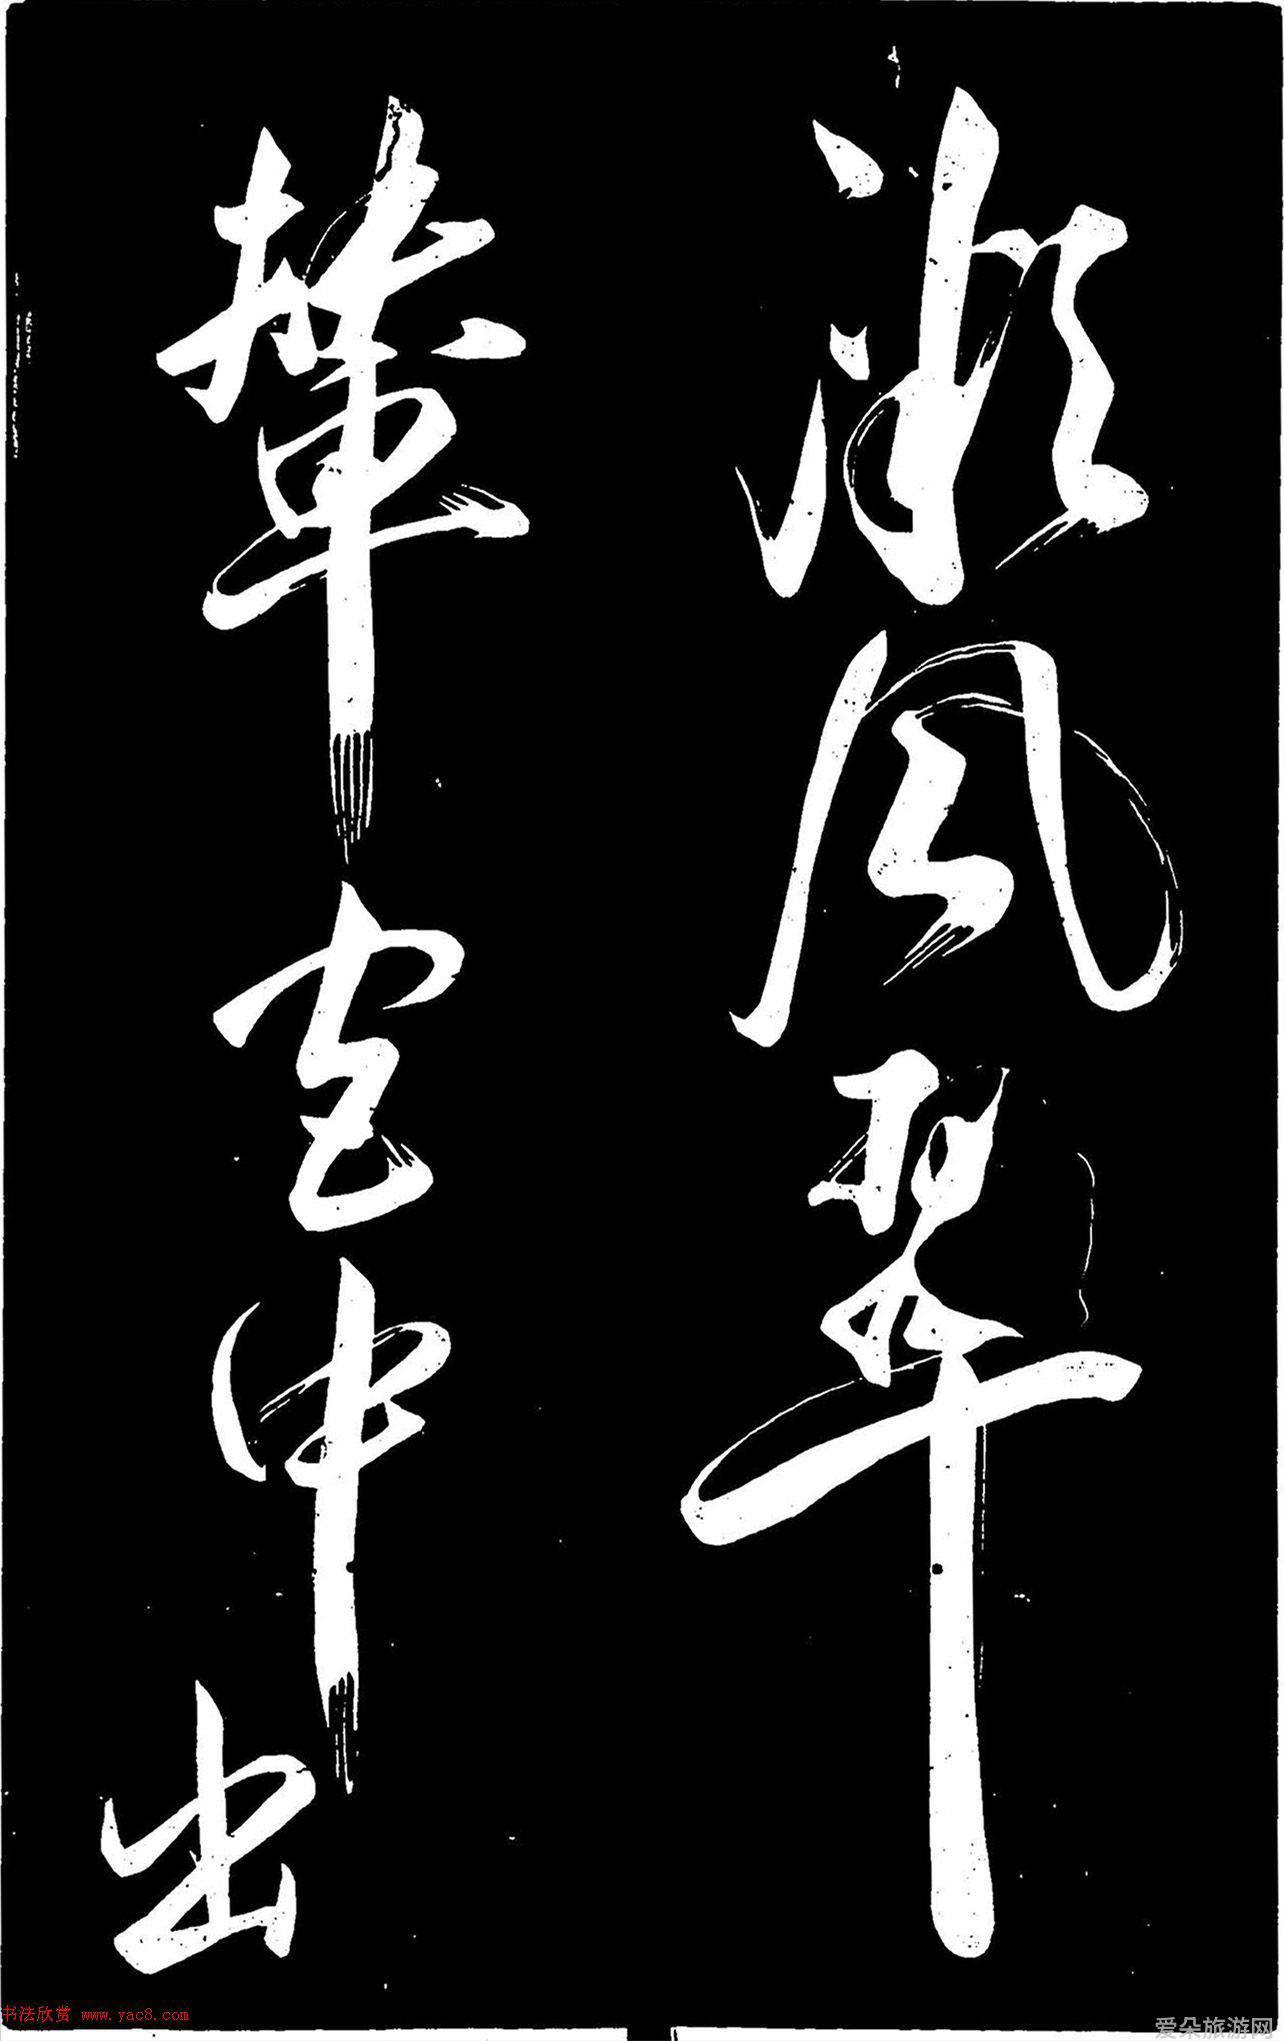 風翠
輦宮中出
书法欣赏 www.yac8.com
爱朵旅游网